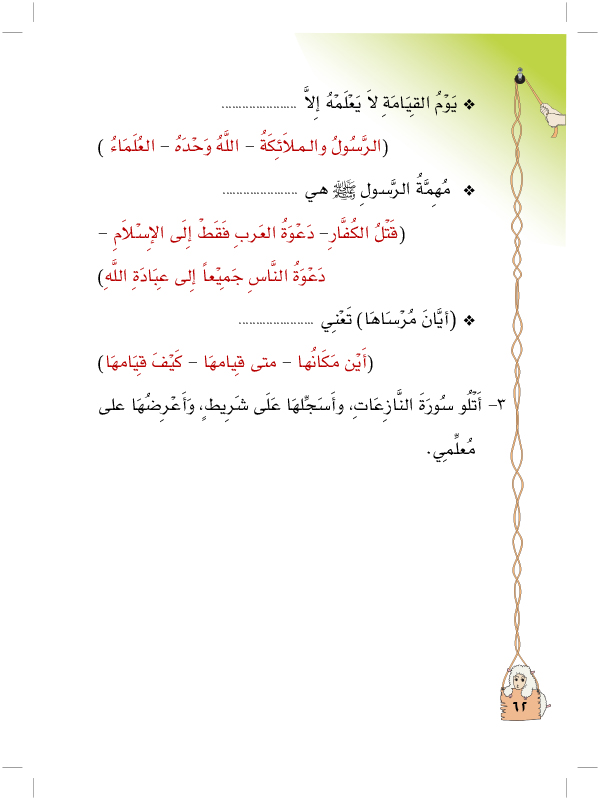 ❖ يَوْمُ القِيَامَةِ لاَ يَعْلَمْهُ إِلاَّ ......................
(الرَّسُولُ والـملاَئِكَةُ – اللَّهُ وَحْدَهُ – العُلَمَاءُ )
❖ مُهِمَّةُ الرَّسولِ ﷺ هي ......................
(قَتْلُ الكُفَّارِ– دَعْوَةُ العَربِ فَقَطْ إِلَى الإِسْلاَمِ –
دَعْوَةُ النَّاسِ جَمِيْعاً إِلى عِبَادَةِ اللَّهِ)
❖ (أيَّانَ مُرْسَاهَا) تَعْنِي ......................
(أَيْن مَكَانُها – متى قيامهَا – كَيْفَ قِيَامهَا)
٣– أَتْلُو سُورَةَ النَّازِعَاتِ، وأَسَجِّلهَا عَلَى شَرِيطٍ، وَأَعْرِضُهَا على
مُعلِّمِي.
٦٢